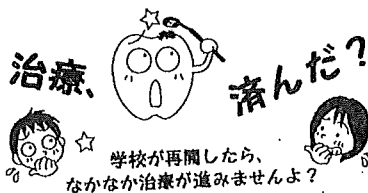 治療、
済んだ？
学校が再開したら、
なかなか治療が進みませんよ？